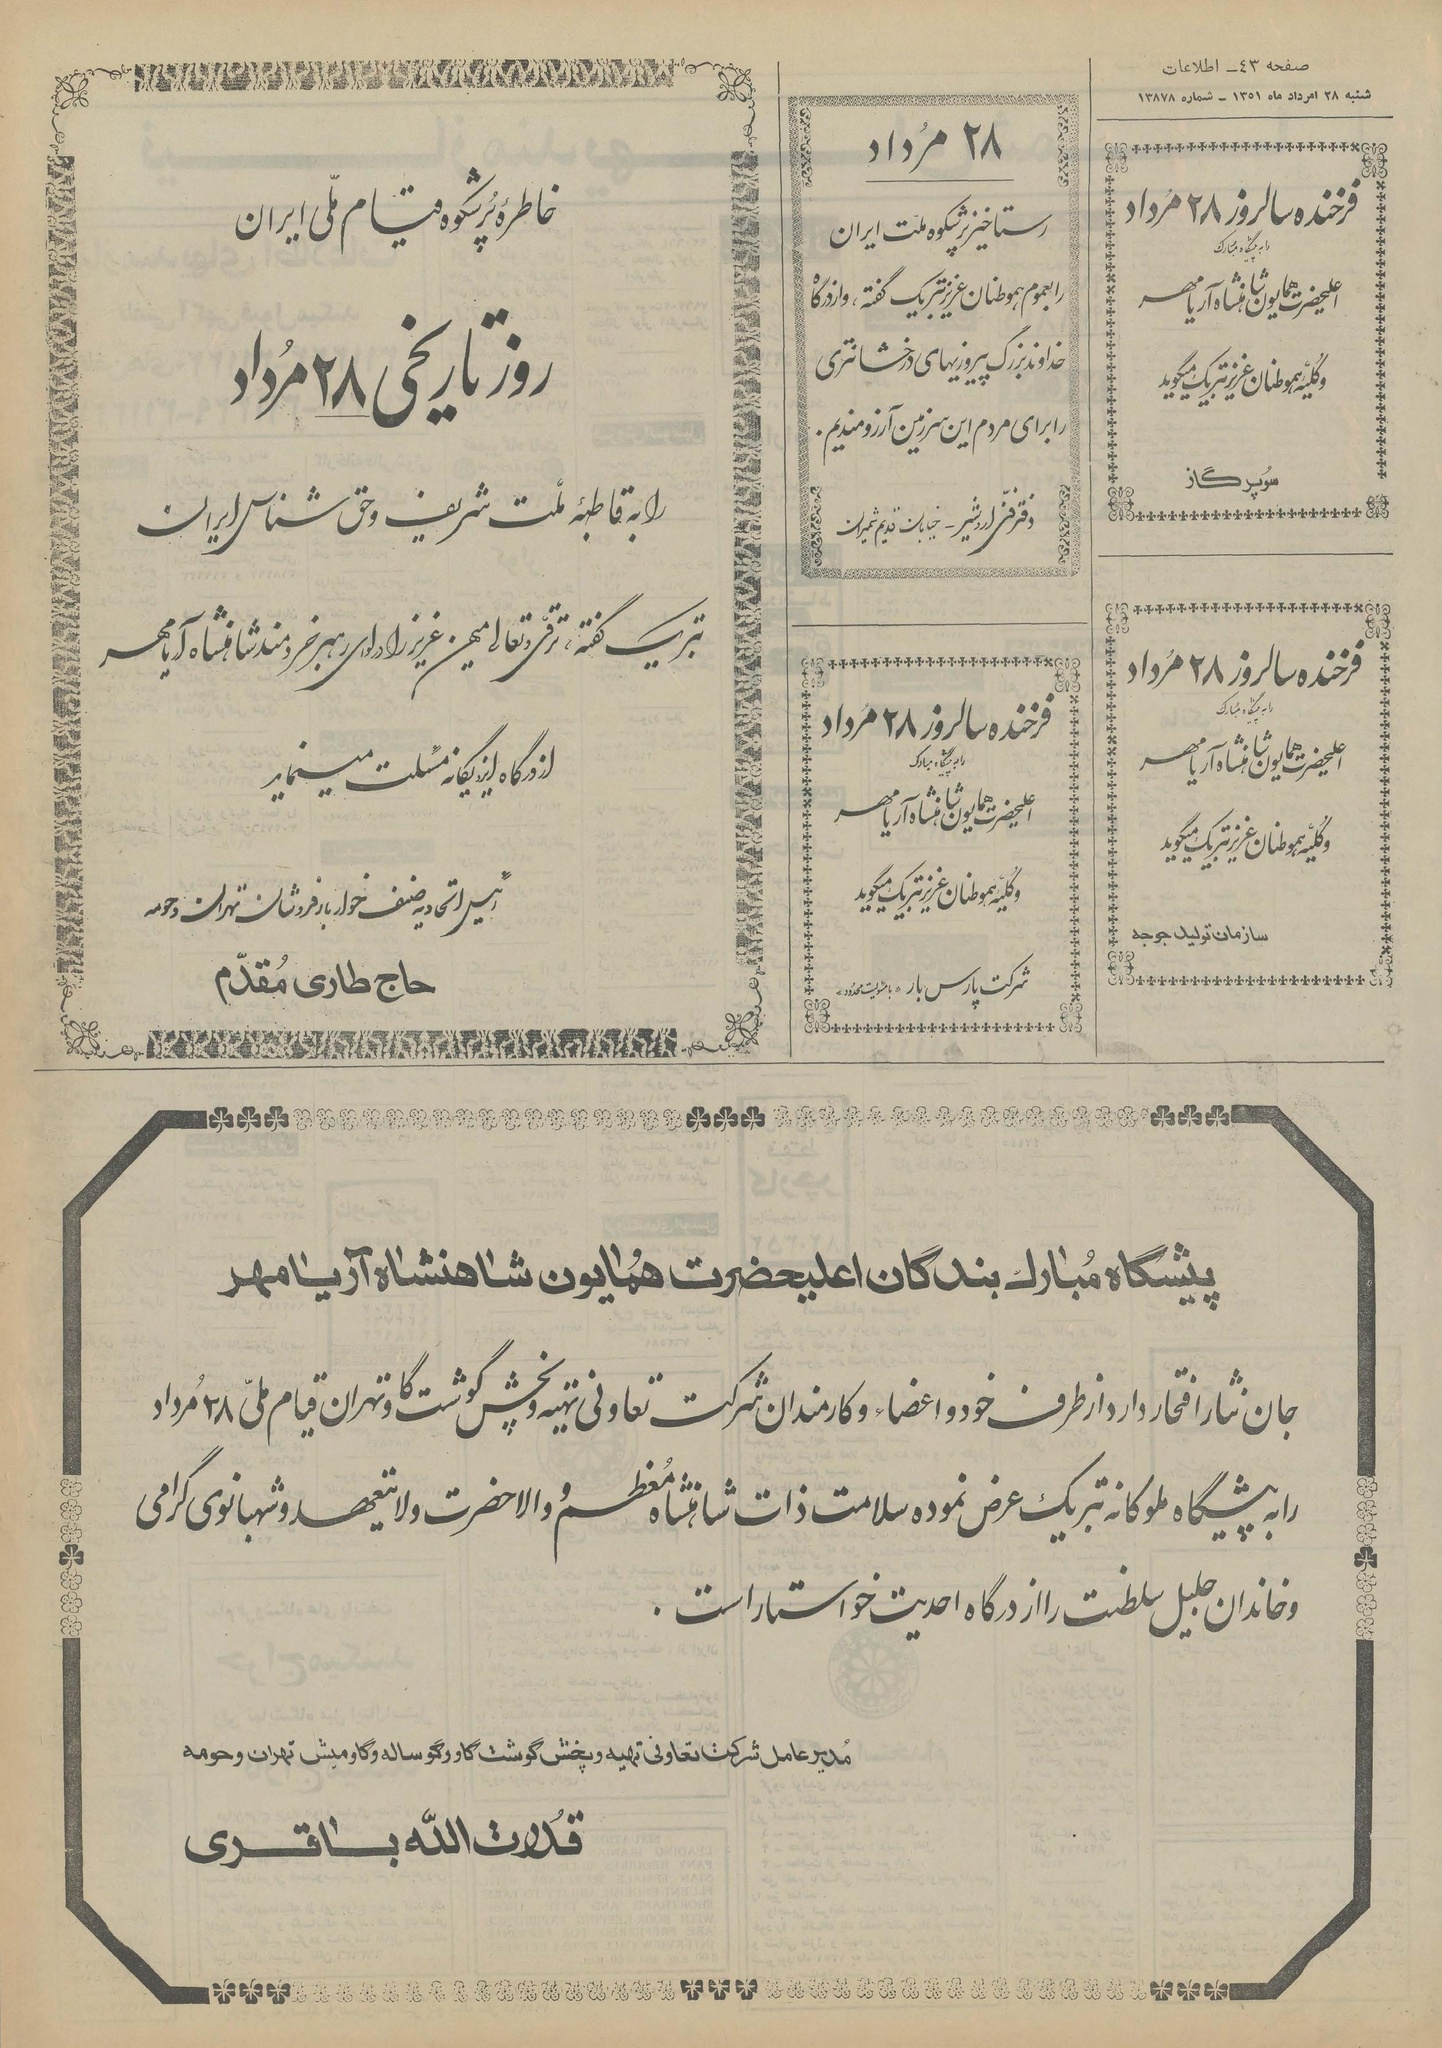 صفحه ۴۳ـ اطلاعات
شنبه ۲۸ امرداد ماه ۱۳۵۱ ـ شماره ۱۳۸۷۸
فرخنده سالروز ۲۸ مُرداد
را به پیشگاه مبارک
اعلیحضرت همایون شاهنشاه آریامهر
و کلیّه هموطنان عزیز تبریک میگوید
سوُپر گاز
فرخنده سالروز ۲۸ مُرداد
را به پیشگاه مبارک
اعلیحضرت همایون شاهنشاه آریامهر
و کلیّه هموطنان عزیز تبریک میگوید
سازمان تولید جوجه
۲۸ مُرداد
رستاخیز پرشکوه ملّت ایران
را بعموم هموطنان عزیز تبریک گفته، و از درگاه
خداوند بزرگ پیروزیهای درخشانتری
را برای مردم این سرزمین آرزومندیم.
دفتر فنّی اردشیر ـ خیابان قدیم شمیران
فرخنده سالروز ۲۸ مُرداد
را به پیشگاه مبارک
اعلیحضرت همایون شاهنشاه آریامهر
و کلیّه هموطنان عزیز تبریک میگوید
شرکت پارس بار «با مسئولیت محدود»
خاطرهٔ پُرشکوه قیام ملّی ایران
روز تاریخی ۲۸ مُرداد
را به قاطبهٔ ملّت شریف و حق شناس ایران
تبریک گفته، ترقّی و تعالی میهن عزیز را در لوای رهبر خردمند شاهنشاه آریامهر
از درگاه ایزد یگانه مسئلت مینماید
رئیس اتحادیه صنف خواربار فروشان تهران و حومه
حاج طاری مُقدّم
پیشگاه مُبارک بندگان اعلیحضرت همُایون شاهنشاه آریامهر
جان نثار افتخار دارد از طرف خود و اعضاء و کارمندان شرکت تعاونی تهیه و پخش گوشت گاو تهران قیام ملّی ۲۸ مُرداد
را به پیشگاه ملوکانه تبریک عرض نموده سلامت ذات شاهنشاه مُعظم و والاحضرت ولایتعهد و شهبانوی گرامی
و خاندان جلیل سلطنت را از درگاه احدیت خواستار است.
مُدیر عامل شرکت تعاونی تهیه و پخش گوشت گاو و گوساله و گاومیش تهران و حومه
قدُرت اللّه باقری